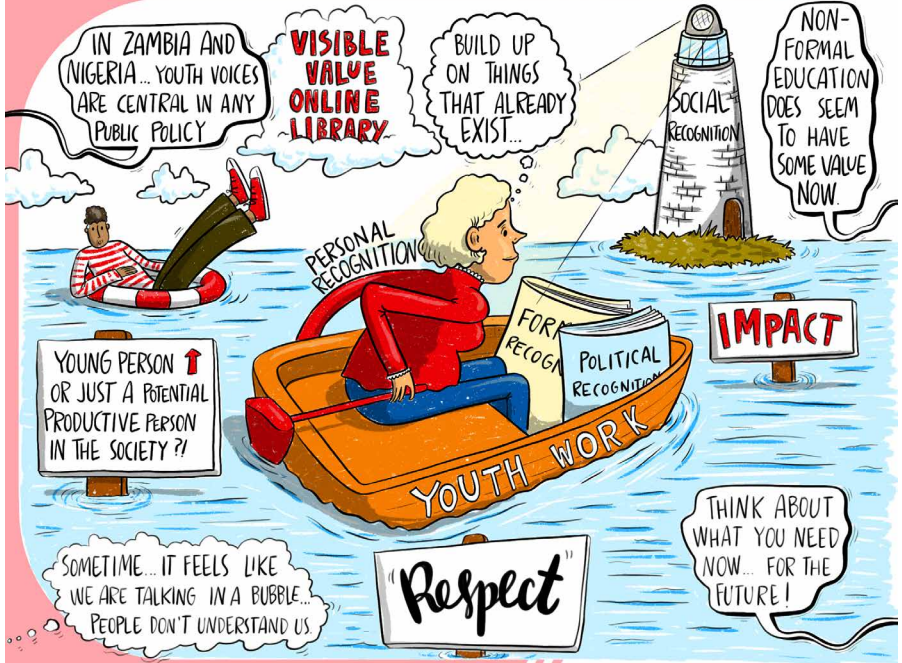 IN ZAMBIA AND
NIGERIA... YOUTH VOICES
ARE CENTRAL IN ANY
PUBLIC POLICY
VISIBLE
VALUE
ONLINE
LIBRARY
BUILD UP
ON THINGS
THAT ALREADY
EXIST...
SOCIAL
RECOGNITION
NON-
FORMAL
EDUCATION
DOES SEEM
TO HAVE
SOME VALUE
NOW.
PERSONAL
RECOGNITION
FOR
RECOGN
POLITICAL
RECOGNITION
IMPACT
YOUNG PERSON
OR JUST A POTENTIAL
PRODUCTIVE PERSON
IN THE SOCIETY ?!
YOUTH WORK
SOMETIME... IT FEELS LIKE
WE ARE TALKING IN A BUBBLE...
PEOPLE DON'T UNDERSTAND US.
"Respect"
THINK ABOUT
WHAT YOU NEED
NOW... FOR THE
FUTURE!